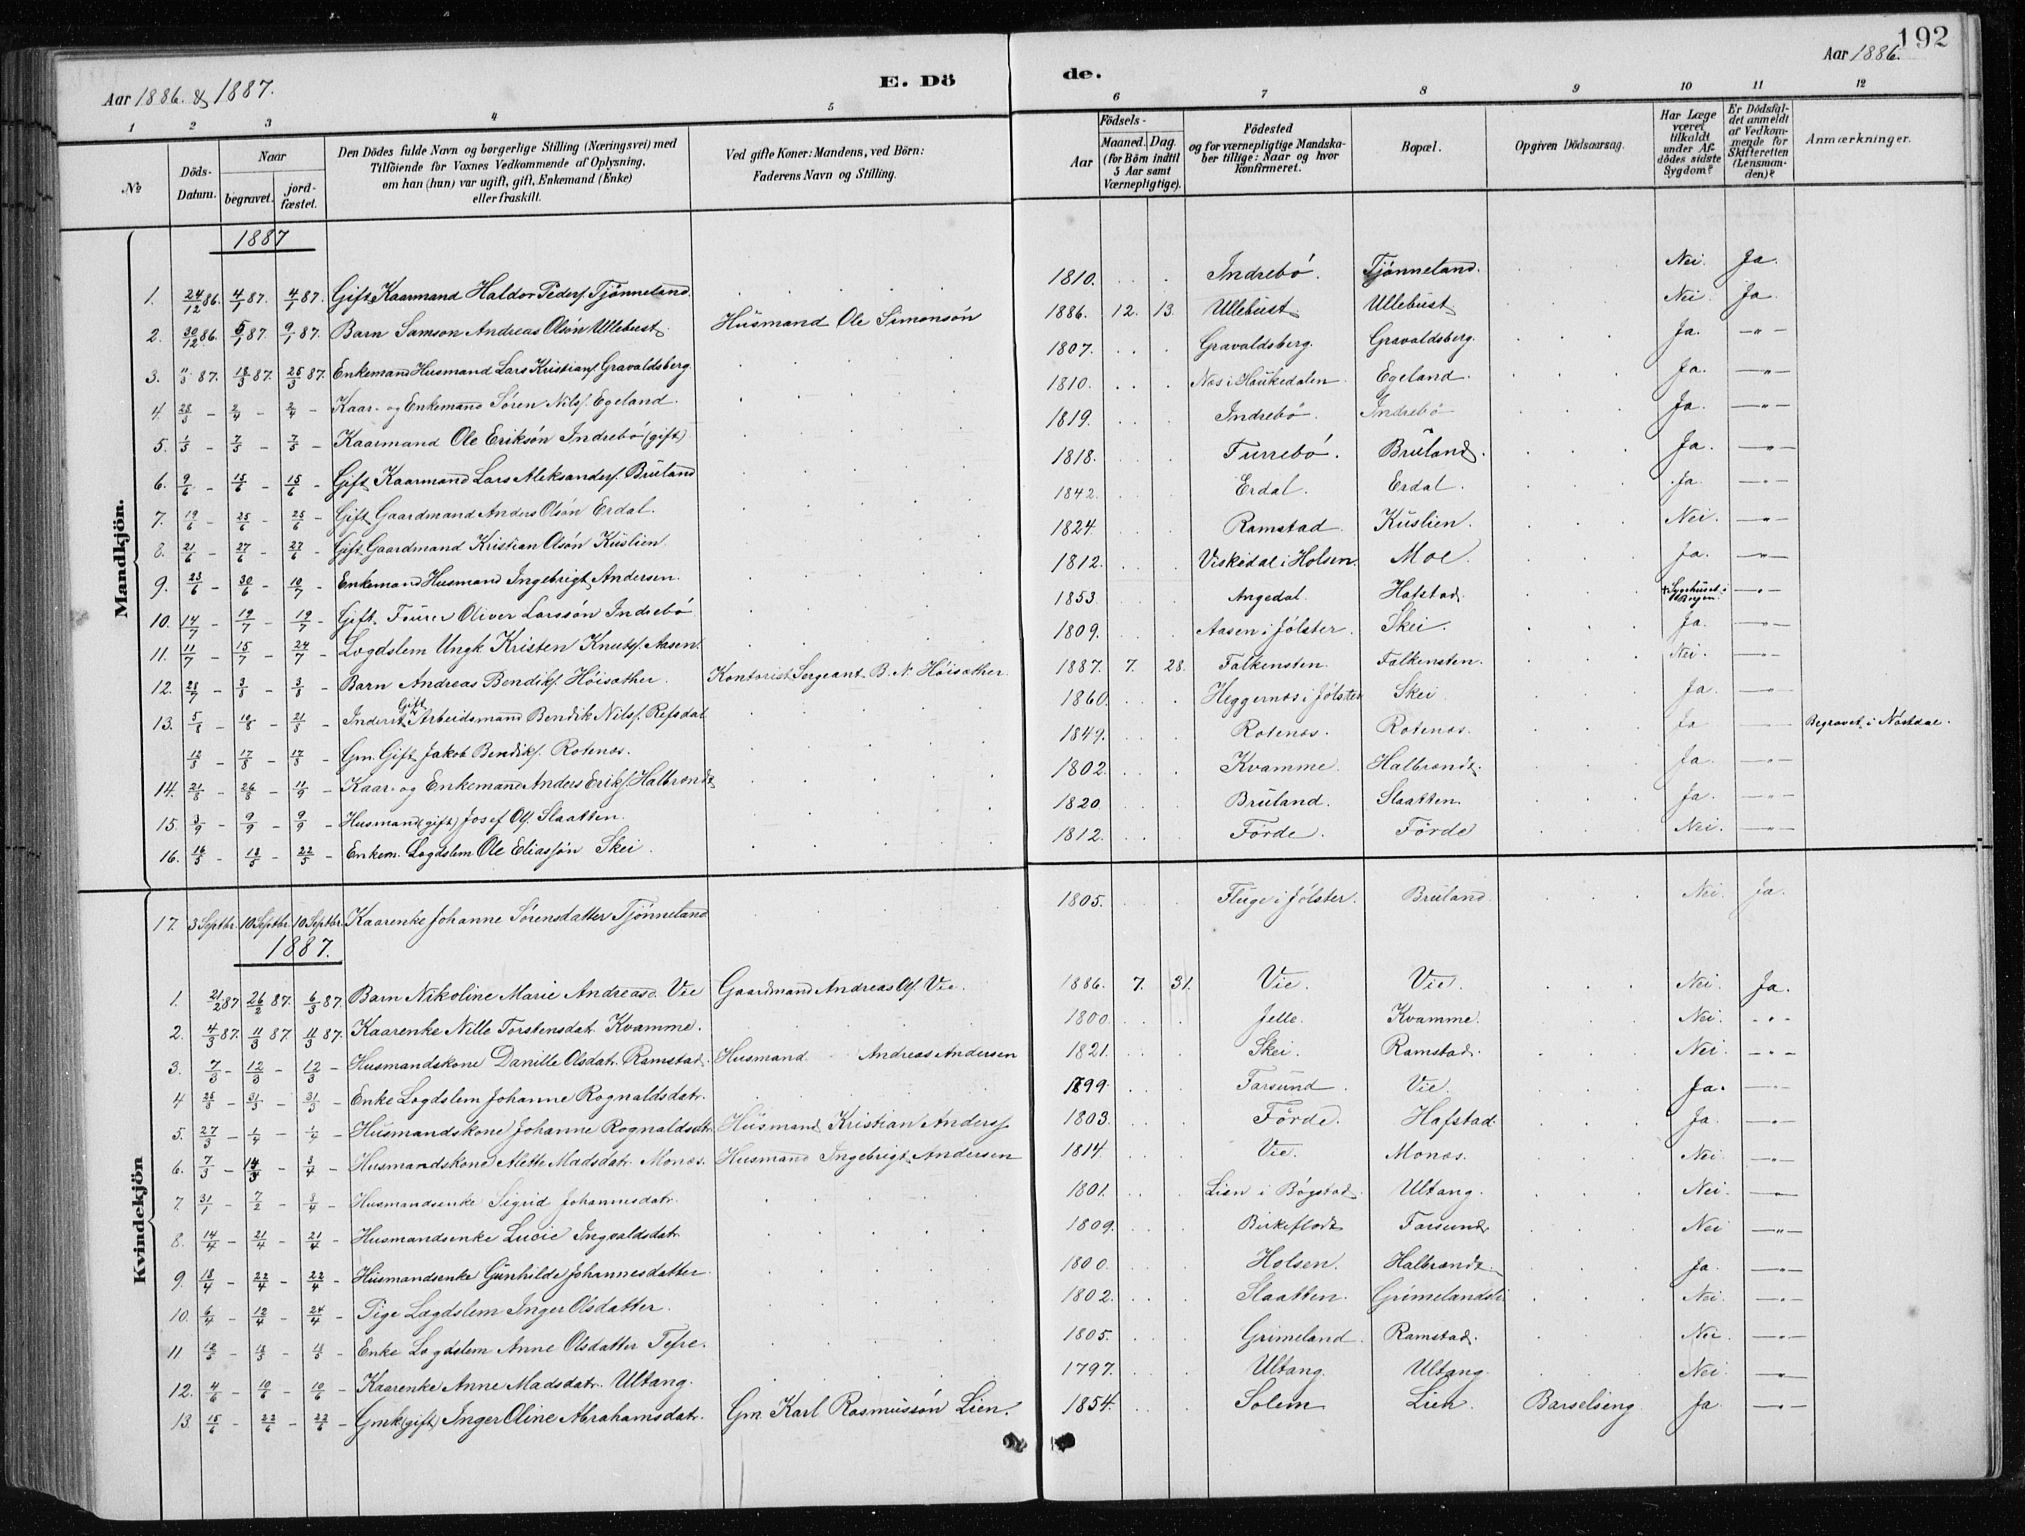 192
Aar 1886 & 1887.
E. Dö
de.
Aar 1886.
1 2 3 4 5 6 7 8 9 10 11 12
No
Döds-Datum.
Naar
begravet.
jord-fæstet.
Den Dödes fulde Navn og borgerlige Stilling (Næringsvei) med
Tilföiende for Voxnes Vedkommende af Oplysning,
om han (hun) var ugift, gift, Enkemand (Enke)
eller fraskilt.
Ved gifte Koner: Mandens, ved Börn:
Faderens Navn og Stilling.
Födsels-
Aar
Maaned. Dag.
(for Börn indtil
5 Aar samt
Værnepligtige).
Födested
og for værnepligtige Mandska-
ber tillige: Naar og hvor
konfirmeret.
Bopæl.
Opgiven Dödsaarsag.
Har Læge
været
tilkaldt
under Af-
dödes sidste
Sygdom?
Er Dödsfal-
det anmeldt
af Vedkom-
mende for
Skifteretten
(Lensman-
den)?
Anmærkninger.
Mandkjön.
1887
1. 24/12 86. 4/1 87. 4/1 87. Gift Kaarmand Haldor Peders. Tjönneland. 1810. Indrebö. Tjönneland. Nei. Ja.
2. 30/12 86. 5/1 87. 9/1 87. Barn Samson Andreas Olsön Ullebust. Husmand Ole Simonsön 1886. 12. 13. Ullebust Ullebust Nei. Ja
3. 11/3 87. 18/3 87. 25/3 87. Enkemand Husmand Lars Kristians. Gravaldsberg. 1807. Gravaldsberg. Gravaldsberg. Ja. —〃—
4. 28/3 - 2/4 - 2/4 - Kaar- og Enkemand Sören Nils. Egeland. 1810. Nes i Haukedalen Egeland. Ja. —〃—
5. 1/5 - 7/5 - 7/5 - Kaarmand Ole Eriksön Indrebö (gift) 1819. Indrebö. Indrebö Ja. —〃—
6. 9/6 - 15/6 - 15/6 - Gift Kaarmand Lars Aleksanders. Bruland 1818. Furrebö. Bruland. Ja. —〃—
7. 19/6 - 25/6 - 25/6 - Gift Gaardmand Anders Olsön Erdal. 1842. Erdal. Erdal. Ja. —〃—
8. 21/6 - 27/6 - 27/6 - Gift Gaardmand Kristian Olsön Kuslien 1824. Ramstad Kuslien. Nei. —〃—
9. 23/6 - 30/6 - 10/7 - Enkemand Husmand Ingebrigt Andersen. 1812. Viskedal i Holsen. Moe. Ja. —〃—
10. 14/7 - 19/7 - 19/7 - Gift Fourer Oliver Larssön Indrebö 1853. Angedal. Hafstad. Sygehuset i Bergen —〃—
11. 11/7 - 15/7 - 24/7 - Lægdslem Ungk Kristen Knuts. Aasen. 1809. Aasen i Jölster. Skei. Ja. —〃—
12. 28/7 - 3/8 - 3/8 - Barn Andreas Bendiks. Höisæther. Kontorist Sergeant B. N. Höisæther. 1887. 7. 28. Falkensten. Falkensten. Nei. —〃—
13. 5/8 - 10/8 - 21/8 - Inderst Gift Arbeidsmand Bendik Nils. Refsdal 1860. Heggernæs i Jölster Skei. Ja. —〃—
12/8 - 17/8 - 17/8 - Gm. Gift Jakob Bendiks. Rotenæs. 1849. Rotenæs. Rotenæs. Ja —〃— Begravet i Nöstdal.
14. 21/8 - 26/8 - 11/9 - Kaar- og Enkemand Anders Eriks. Halbrændt 1802. Kvamme. Halbrændt. Ja. —〃—
15. 3/9 - 9/9 - 9/9 - Husmand (gift) Josef Ols. Slaatten. 1820. Bruland. Slaatten. Ja. —〃—
16. 16/5 - 18/5 - 22/5 - Enkem. Lægdslem Ole Eliassön Skei. 1812. Förde. Förde Nei. —〃—
17. 3 Septbr. 10 Septbr. 10 Septbr. Kaarenke Johanne Sörensdatter Tjönneland 1805. Fluge i Jölster. Bruland. Nei. Ja.
Kvindekjön
1887.
1. 21/2 87 26/2 87. 6/3 87. Barn Nikoline Marie Andreasd. Vie Gaardmand Andreas Ols. Vie. 1886. 7. 31. Vie. Vie. Nei. Ja.
2. 4/3 87. 11/3 87. 11/3 87. Kaarenke Nille Torstensdat. Kvamme. 1800. Jelle. Kvamme. Nei. -〃-
3. 7/3 - 12/3 - 12/3 - Husmandskone Danille Olsdatr. Ramstad. Husmand Andreas Andersen 1821. Skei. Ramstad. Nei —〃—
4 25/3 - 31/3 - 31/3 - Enke Lægdslem Johanne Rognaldsdatr. 1899. Farsund. Vie. Ja. —〃—
5. 27/3 - 1/4 - 1/4 - Husmandskone Johanne Rognaldsdtr. Husmand Kristian Anders. 1803. Förde. Hafstad. Ja. —〃—
6. 7/3 - 14/3 - 3/4 - Husmandskone Alette Madsdatr. Monæs. Husmand Ingebrigt Andersen 1814 Vie. Monæs. Nei —〃—
7. 31/1 - 7/2 - 3/4 - Husmandsenke Sigrid Johannesdatr. 1801. Lien i Bögstad. Ultang. Nei. —〃—
8. 14/4 - 21/4 - 21/4 - Husmandsenke Lucie Ingvaldsdatr. 1809. Birkeflodt Farsund. Nei —〃—
9. 18/4 - 22/4 - 22/4 - Husmandsenke Gunhilde Johannesdatter. 1800. Holsen. Halbrændt. Ja. —〃—
10. 6/4 - 12/4 - 24/4 - Pige Lægdslem Inger Olsdatter. 1802. Slaatten. Grimelandsli Nei. —〃—
11. 12/5 - 18/5 - 18/5 - Enke Lægdslem Anne Olsdatter Tefre. 1805. Grimeland. Ramstad. Nei. —〃—
12. 4/6 - 10/6 - 10/6 - Kaarenke Anne Madsdatr. Ultang. 1797. Ultang. Ultang. Nei. —〃—
13. 15/6 - 22/6 - 22/6 - Gmk (gift) Inger Oline Abrahamsdatr. Gm. Karl Rasmussön Lien. 1854. Solem Lien. Barselseng. Ja —〃—